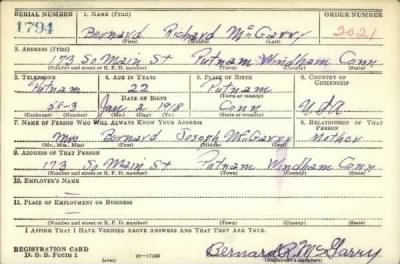 SERIAL NUMBER 1. NAME (Print) ORDER NUMBER
1794 Bernard Richard McGarry 2021
(First) (Middle) (Last)
2. ADDRESS (Print)
173 So. Main St Putnam Windham Conn
(Number and street or R. F. D. number) (Town) (County) (State)
3. TELEPHONE 4. AGE IN YEARS 5. PLACE OF BIRTH 6. COUNTRY OF CITIZENSHIP
Putnam 22 Putnam
DATE OF BIRTH (Town or county)
58-3 Jan 2 1918 Conn USA
(Mo.) (Day) (Yr.) (State or country)
7. NAME OF PERSON WHO WILL ALWAYS KNOW YOUR ADDRESS 8. RELATIONSHIP OF THAT PERSON
Mrs Bernard Joseph McGarry Mother
(Mr., Mrs., Miss) (First) (Middle) (Last)
9. ADDRESS OF THAT PERSON
173 So Main St Putnam Windham Conn
(Number and street or R. F. D. number) (Town) (County) (State)
10. EMPLOYER'S NAME
—
11. PLACE OF EMPLOYMENT OR BUSINESS
—
(Number and street or R. F. D. number) (Town) (County) (State)
I AFFIRM THAT I HAVE VERIFIED ABOVE ANSWERS AND THAT THEY ARE TRUE.
REGISTRATION CARD
D. S. S. FORM 1 Bernard R. McGarry
(Registrant's signature)